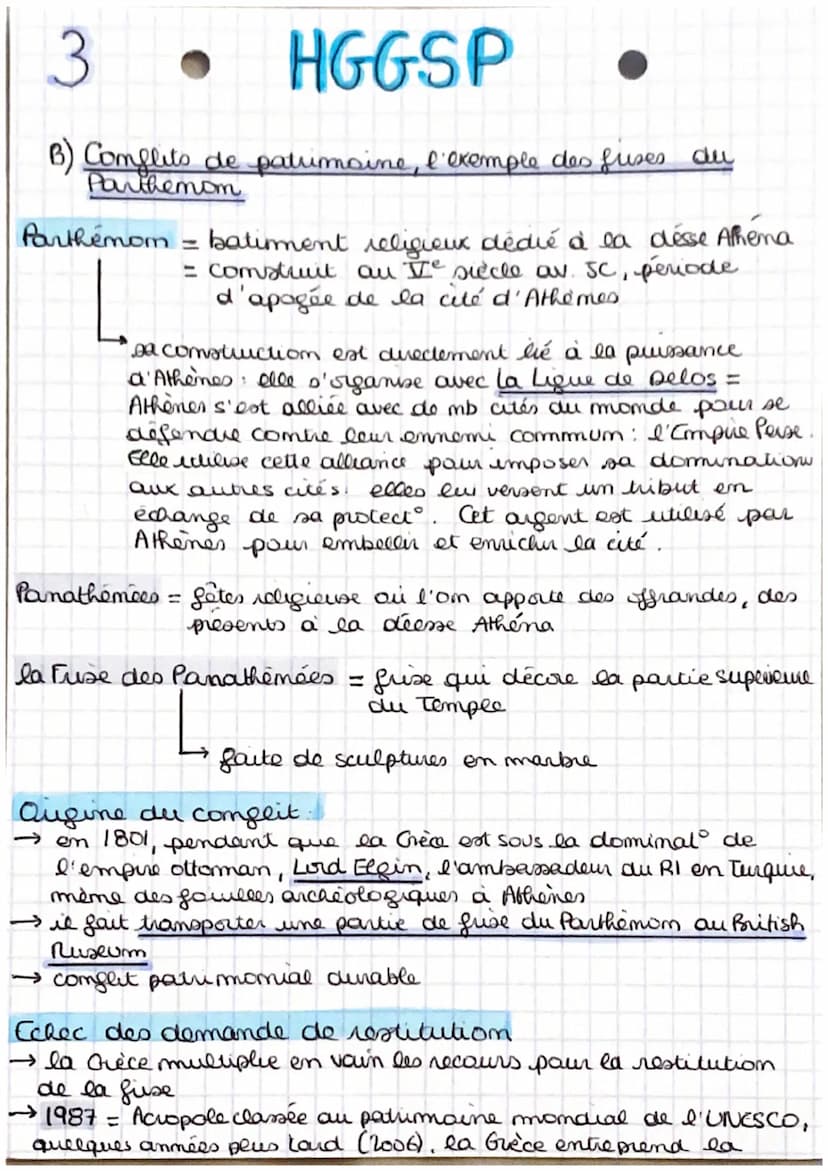 3 • HGGSP •
B) Conflits de patrimoine, l'exemple des frises du
Parthénon
Parthénon = batiment religieux dédié à la désse Athéna
= construit au Ve siècle av. JC, période
d'apogée de la cité d'Athènes
→ sa construction est directement lié à la puissance
d'Athènes : elle s'organise avec la Ligue de Delos =
Athènes s'est alliée avec de nb cités du monde pour se
défendre contre leur ennemi commun : l'Empire Perse.
Elle utilise cette alliance pour imposer sa domination
aux autres cités : elles lui versent un tribut en
échange de sa protect°. Cet argent est utilisé par
Athènes pour embellir et enrichir la cité.
Panathénées = fêtes religieuse où l'on apporte des offrandes, des
présents à la déesse Athéna
la Frise des Panathénées = frise qui décore la partie supérieure
du Temple
→ faite de sculptures en marbre
Origine du conflit :
→ en 1801, pendant que la Grèce est sous la dominat° de
l'empire ottoman, Lord Elgin, l'ambassadeur du RI en Turquie,
mène des fouilles archéologiques à Athènes
→ il fait transporter une partie de frise du Parthénon au British
Museum
→ conflit patrimonial durable
Echec des demande de restitution
→ la Grèce multiplie en vain les recours pour la restitution
de la frise
→ 1987 = Acropole classée au patrimoine mondial de l'UNESCO,
quelques années plus tard (2006), la Grèce entreprend la